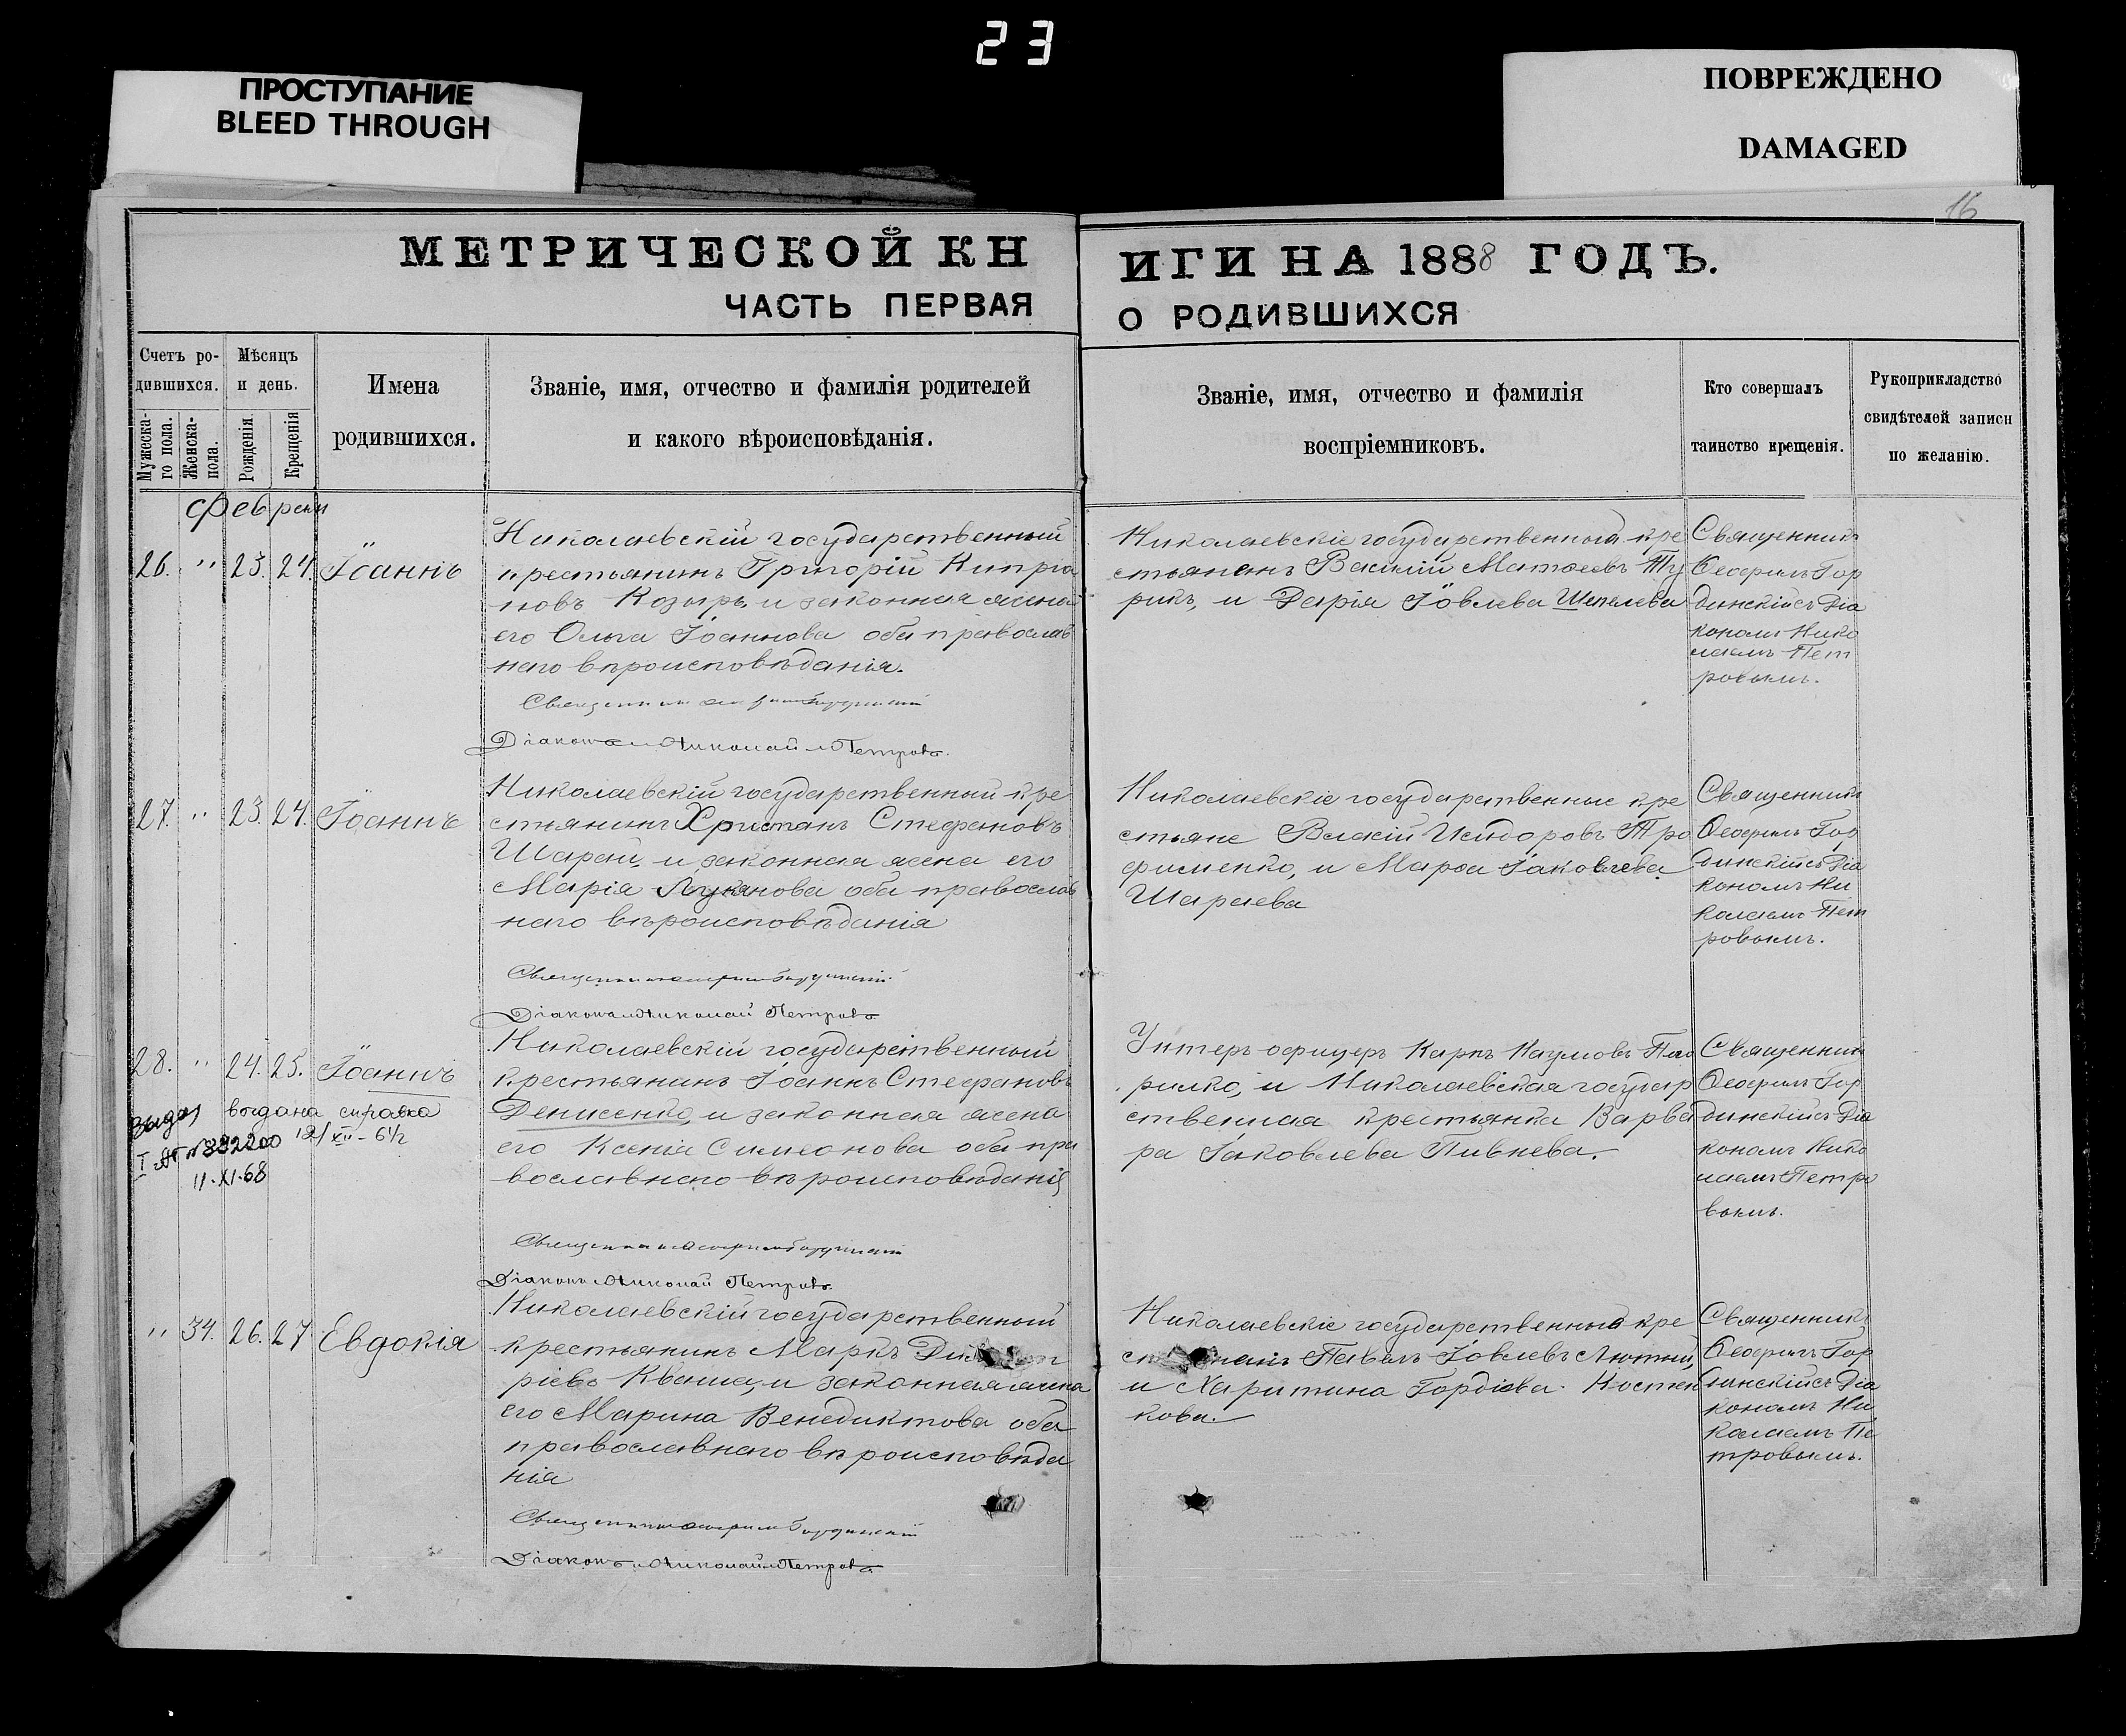 23
ПРОСТУПАНИЕ
BLEED THROUGH
ПОВРЕЖДЕНО
DAMAGED
16
МЕТРИЧЕСКОЙ КНИГИ НА 1888 ГОДЪ.
ЧАСТЬ ПЕРВАЯ О РОДИВШИХСЯ
Счетъ ро-
дившихся.
Мужеска-
го пола.
Женска-
пола.
Мѣсяцъ
и день.
Рожденія
Крещенія
Имена
родившихся.
Званіе, имя, отчество и фамилія родителей
и какого вѣроисповѣданія.
Званіе, имя, отчество и фамилія
воспріемниковъ.
Кто совершалъ
таинство крещенія.
Рукоприкладство
свидѣтелей записи
по желанію.
26. " 23. 24. Іоаннъ
Николаевскій государственный
крестьянинъ Григорій Кипріа
новъ Козырь и законная жена
его Ольга Іоаннова оба православ
наго вѣроисповѣданія.
Діаконъ Николай Петровъ.
Николаевскіе государственный кре
стьянинъ Василій Матѳеевъ Ту
рикъ, и Дарія Іовлева Шепелева
Священникъ
Ѳеофилъ Гор
динскій съ Діа
кономъ Нико
лаемъ Пет
ровымъ.
27. " 23. 24. Іоаннъ
Николаевскій государственный кре
стьянинъ Христанъ Стефановъ
Шарай, и законная жена его
Марія Лукянова оба православ
наго вѣроисповѣданія
Діаконъ Николай Петровъ
Николаевскіе государственные кре
стьяне Василій Исидоровъ Тро
фименко, и Марѳа Іаковлева
Шараева
Священникъ
Ѳеофилъ Гор
динскій съ Діа
кономъ Ни
колаемъ Пет
ровымъ.
28. " 24. 25. Іоаннъ
выдана справка
12/XII-61г
11.XI.68
Николаевскій государственный
крестьянинъ Іоаннъ Стефановъ
Денисенко, и законная жена
его Ксенія Симеонова оба пра
вославнаго вѣроисповѣданія
Діаконъ Николай Петровъ.
Унтеръ-офицеръ Карпъ Наумовъ
и Николаевская государ
ственная крестьянка Варва
ра Іаковлева Пивнева.
Священникъ
Ѳеофилъ Гор
динскій съ Діа
кономъ Нико
лаемъ Петро
вымъ.
" 34. 26. 27 Евдокія
Николаевскій государственный
крестьянинъ Маркъ
ріевъ Кваша, и законная жена
его Марина Венедиктова оба
православнаго вѣроисповѣда
нія
Діаконъ Николай Петровъ
Николаевскіе государственный кре
Павелъ Іовлевъ Лютый,
и Харитина Гордіева Костен
кова.
Священникъ
Ѳеофилъ Гор
динскій съ Діа
кономъ Ни
колаемъ Пе
тровымъ.